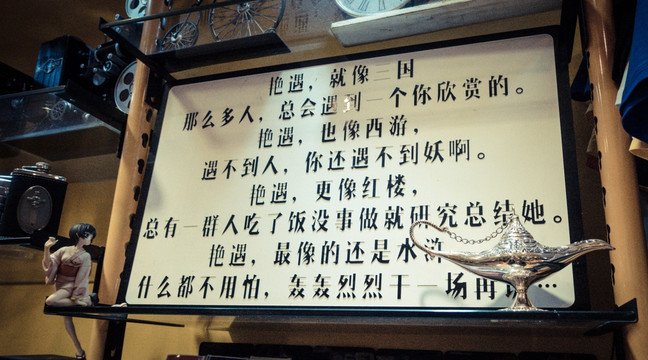 艳遇，就像三国
那么多人，总会遇到一个你欣赏的。
艳遇，也像西游，
遇不到人，你还遇不到妖啊。
艳遇，更像红楼，
总有一群人吃了饭没事做就研究总结她。
艳遇，最像的还是水浒
什么都不用怕，轰轰烈烈干一场再说…